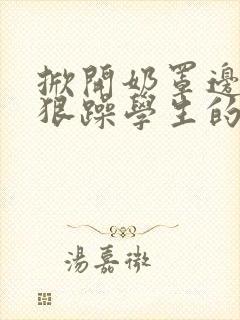 掀開奶罩邊
狠躁學生的
湯嘉微